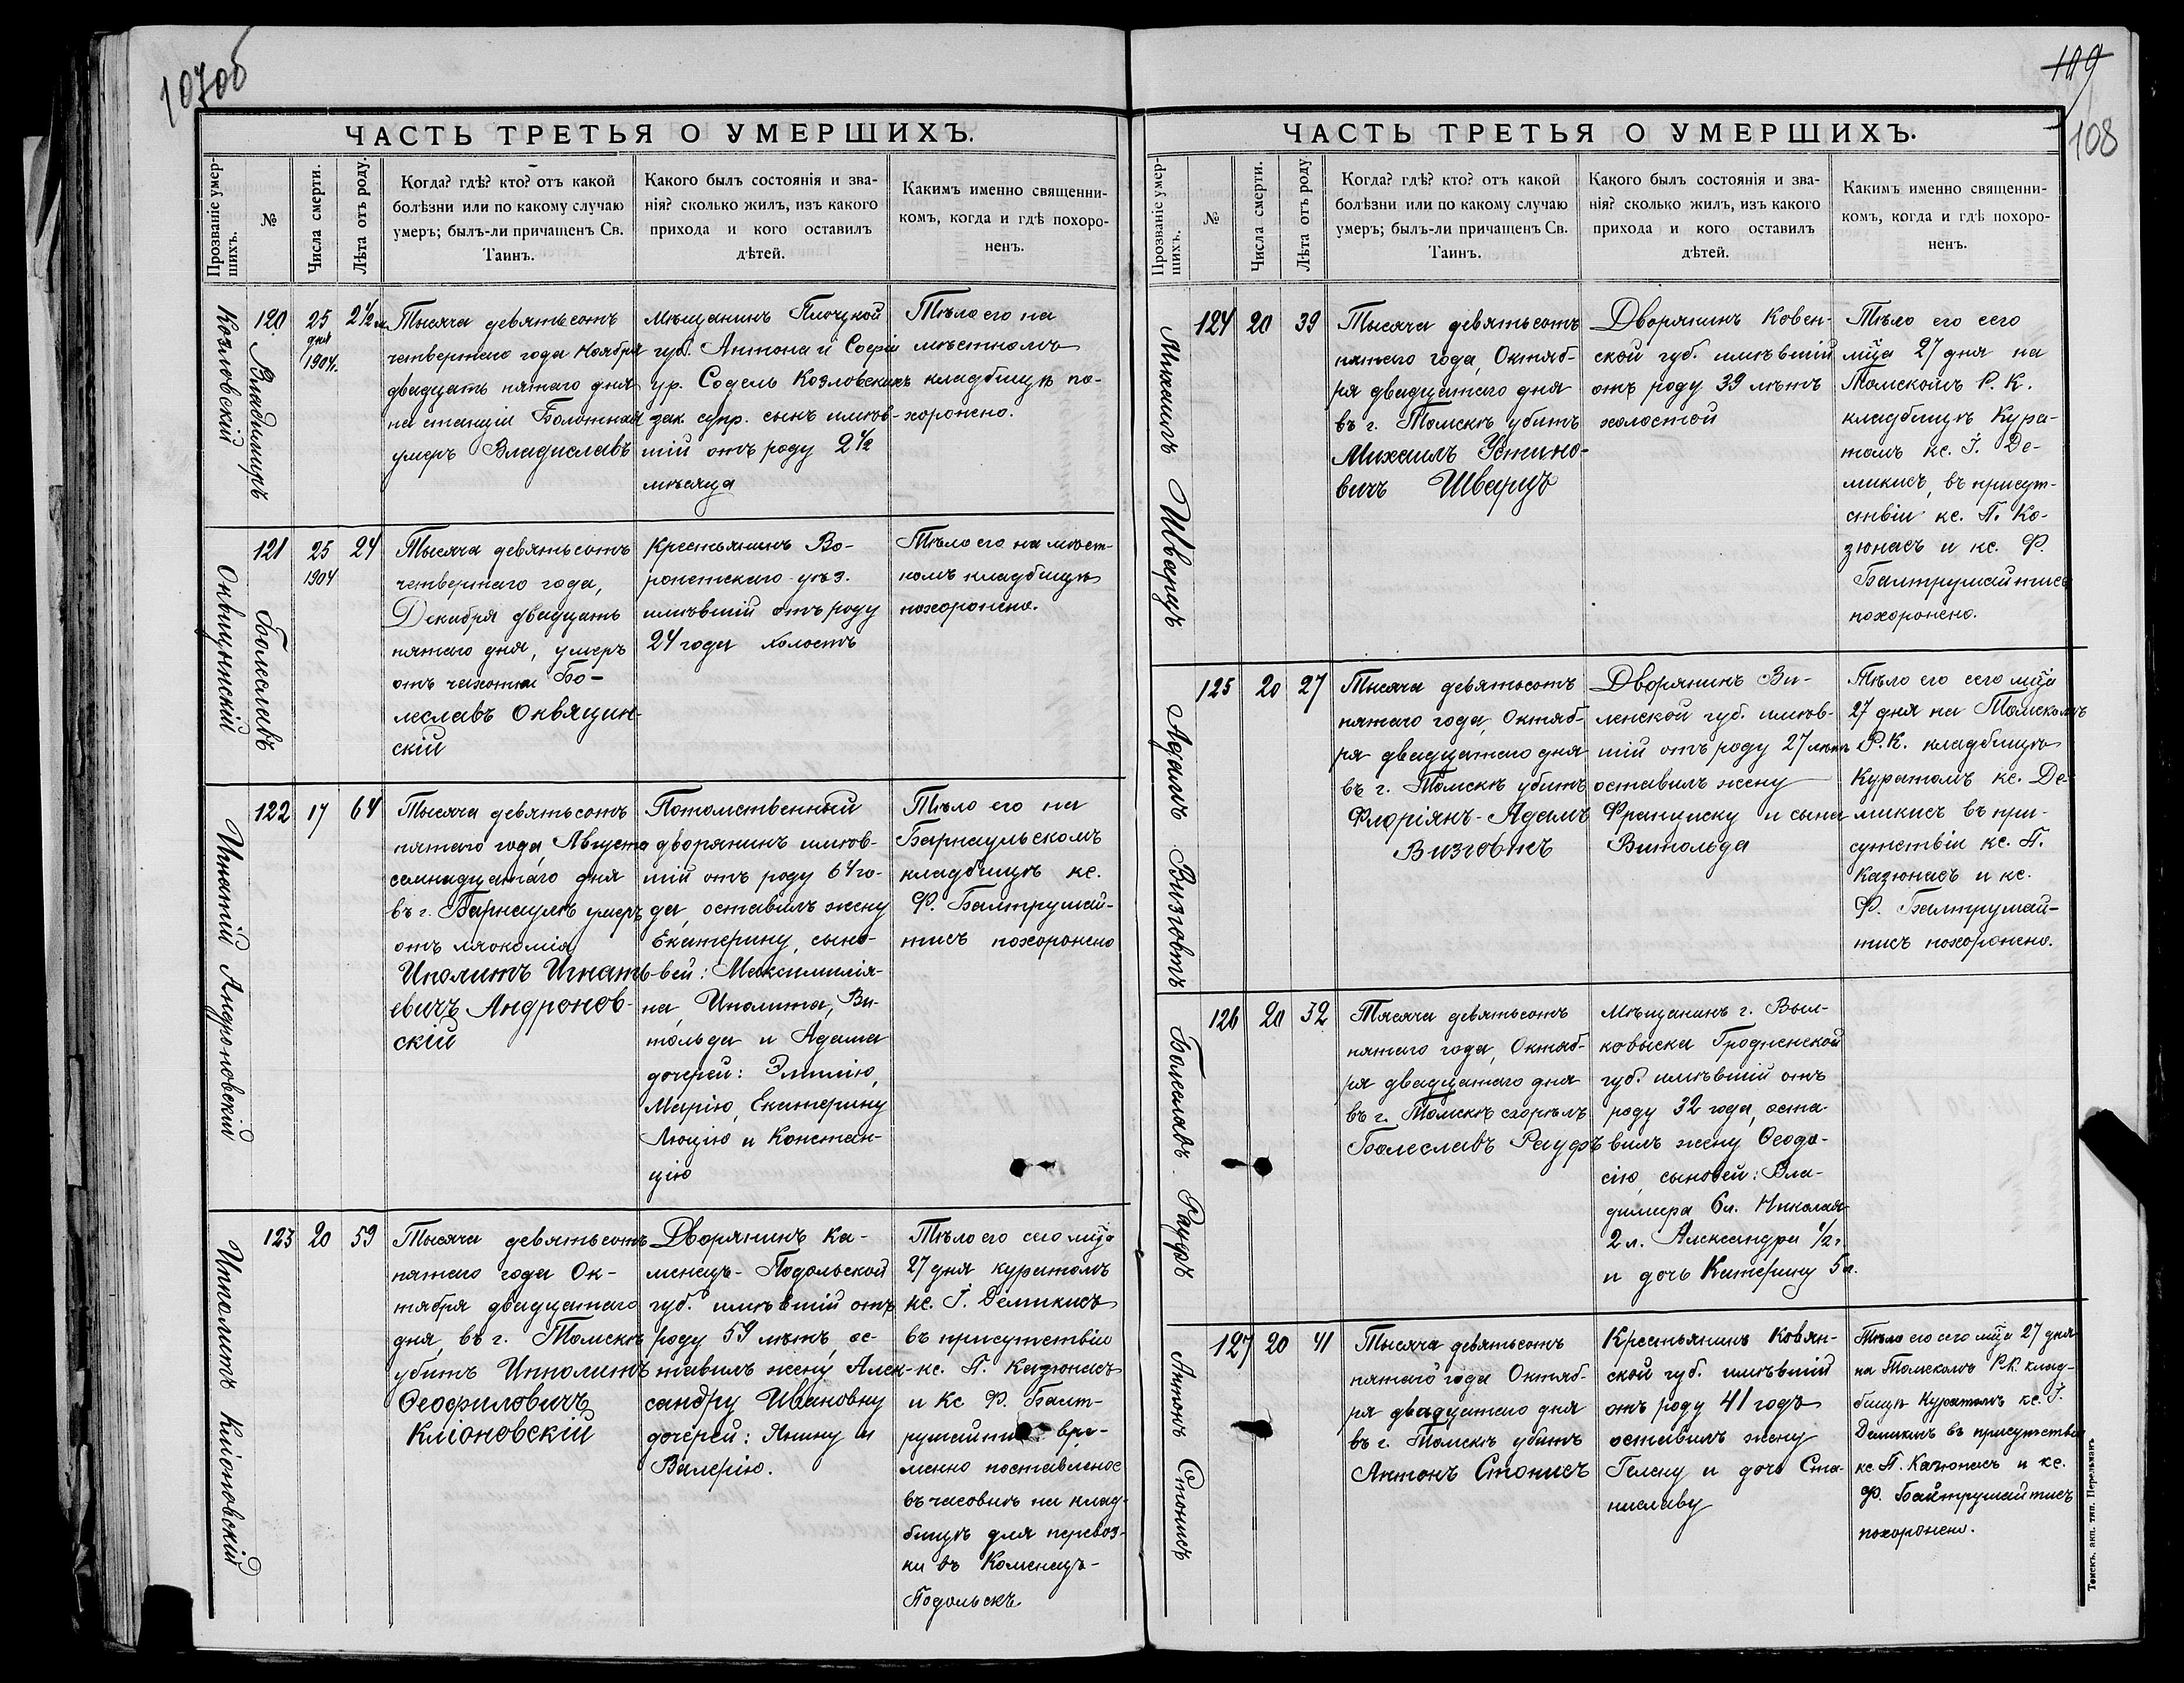 107об
ЧАСТЬ ТРЕТЬЯ О УМЕРШИХЪ.
Прозваніе умер-
шихъ.
№
Числа смерти.
Лѣта отъ роду.
Когда? гдѣ? кто? отъ какой
болѣзни или по какому случаю
умеръ; былъ-ли причащенъ Св.
Таинъ.
Какого былъ состоянія и зва-
нія? сколько жилъ, изъ какого
прихода и кого оставилъ
дѣтей.
Какимъ именно священни-
комъ, когда и гдѣ похоро-
ненъ.
Козловскій
Владимиръ
120
25
дня
1904г.
2½ м.
Тысяча девятьсотъ
четвертаго года Ноября
двадцать пятаго дня
на станціи Болотная
умеръ Владиславъ
Мѣщанинъ Плоцкой
губ. Антона и Софіи
ур. Содель Козловскихъ
зак. супр. сынъ имѣв-
шій отъ роду 2½
мѣсяца
Тѣло его на
мѣстномъ
кладбищѣ по-
хоронено.
Оквяцинскій
Болеславъ
121
25
1904
24
Тысяча девятьсотъ
четвертаго года,
Декабря двадцать
пятаго дня, умеръ
отъ чахотки Бо-
леславъ Оквяцин-
скій
Крестьянинъ Во-
ронежскаго уѣз.
имѣвшій отъ роду
24 года холостъ
Тѣло его на мѣст-
номъ кладбищѣ
похоронено.
Игнатій Андроновскій
122
17
64
Тысяча девятьсотъ
пятаго года, Августа
семнадцатаго дня
въ г. Барнаулѣ умеръ
отъ
Иполитъ Игнать-
евичъ Андронов-
скій
Потомственный
дворянинъ имѣв-
шій отъ роду 64 го-
да, оставилъ жену
Екатерину, сыно-
вей: Максимилія-
на, Иполита, Ви-
тольда и Адама
дочерей: Эмилію,
Марію, Екатерину
Люцію и Констан-
цію
Тѣло его на
Барнаульскомъ
кладбищѣ кс.
Ф. Балтрушай-
тисъ похоронено
Ипполитъ Кліоновскій
123
20
59
Тысяча девятьсотъ
пятаго года Ок-
тября двадцатаго
дня, въ г. Томскѣ
убитъ Ипполитъ
Ѳеофиловичъ
Кліоновскій
Дворянинъ Ка-
менецъ-Подольской
губ. имѣвшій отъ
роду 59 лѣтъ, ос-
тавилъ жену Алек-
сандру Ивановну
дочерей: Янину и
Валерію.
Тѣло его сего мца
27 дня куратомъ
кс. І. Демикисъ
въ присутствіи
кс. П. Казюнасъ
и Кс Ф. Балт-
рушайтисъ вре-
менно поставленое
въ часовнѣ на клад-
бищѣ для перевоз-
ки въ Каменецъ-
Подольскъ.
109
108
ЧАСТЬ ТРЕТЬЯ О УМЕРШИХЪ.
Прозваніе умер-
шихъ.
№
Числа смерти.
Лѣта отъ роду
Когда? гдѣ? кто? отъ какой
болѣзни или по какому случаю
умеръ; былъ-ли причащенъ Св.
Таинъ.
Какого былъ состоянія и зва-
нія? сколько жилъ, изъ какого
прихода и кого оставилъ
дѣтей.
Какимъ именно священни-
комъ, когда и гдѣ похоро-
ненъ.
Михаилъ Шварцъ
124
20
39
Тысяча девятьсотъ
пятаго года, Октяб-
ря двадцатаго дня
въ г. Томскѣ убитъ
Михаилъ Устино-
вичъ Шварцъ
Дворянинъ Ковен-
ской губ. имѣвшій
отъ роду 39 лѣтъ
холостой
Тѣло его сего
мца 27 дня на
Томскомъ Р. К.
кладбищѣ Кура-
томъ кс. І. Де-
микисъ, въ присут-
ствіи кс. П. Ка-
зюнасъ и кс. Ф.
Балтрушайтисъ
похоронено.
Адамъ Визговтъ
125
20
27
Тысяча девятьсотъ
пятаго года, Октяб-
ря двадцатаго дня
въ г. Томскѣ убитъ
Флоріянъ-Адамъ
Визговтъ
Дворянинъ Ви-
ленской губ. имѣв-
шій отъ роду 27 лѣтъ
оставилъ жену
Франциску и сына
Витольда
Тѣло его сего мца
27 дня на Томскомъ
Р. К. кладбищѣ
Куратомъ кс. Де-
микисъ въ при-
сутствіи кс. П.
Казюнасъ и кс.
Ф. Балтрушай-
тисъ похоронено.
Болеславъ Рауфъ
126
20
32
Тысяча девятьсотъ
пятаго года, Октяб-
ря двадцатаго дня
въ г. Томскѣ сгорѣлъ
Болеславъ Рауфъ
Мѣщанинъ г. Вол-
ковыска Гродненской
губ. имѣвшій отъ
роду 32 года, оста-
вилъ жену Ѳеодо-
сію, сыновей: Вла-
димира 6 л. Николая
2 л. Александра ½ г.
и дочь Катерину 5 л.
Антонъ Стонисъ
127
20
41
Тысяча девятьсотъ
пятаго года Октяб-
ря двадцатаго дня
въ г. Томскѣ убитъ
Антонъ Стонисъ
Крестьянинъ Ковен-
ской губ. имѣвшій
отъ роду 41 годъ
оставилъ жену
Гелену и дочь Ста-
ниславу
Тѣло его сего мца 27 дня
на Томскомъ Р.К. клад-
бищѣ Куратомъ кс. І.
Демикисъ въ присутствіи
кс. П. Казюнасъ и кс.
Ф. Балтрушайтисъ
похоронено.
Томскъ. акц. тип. Перельманъ